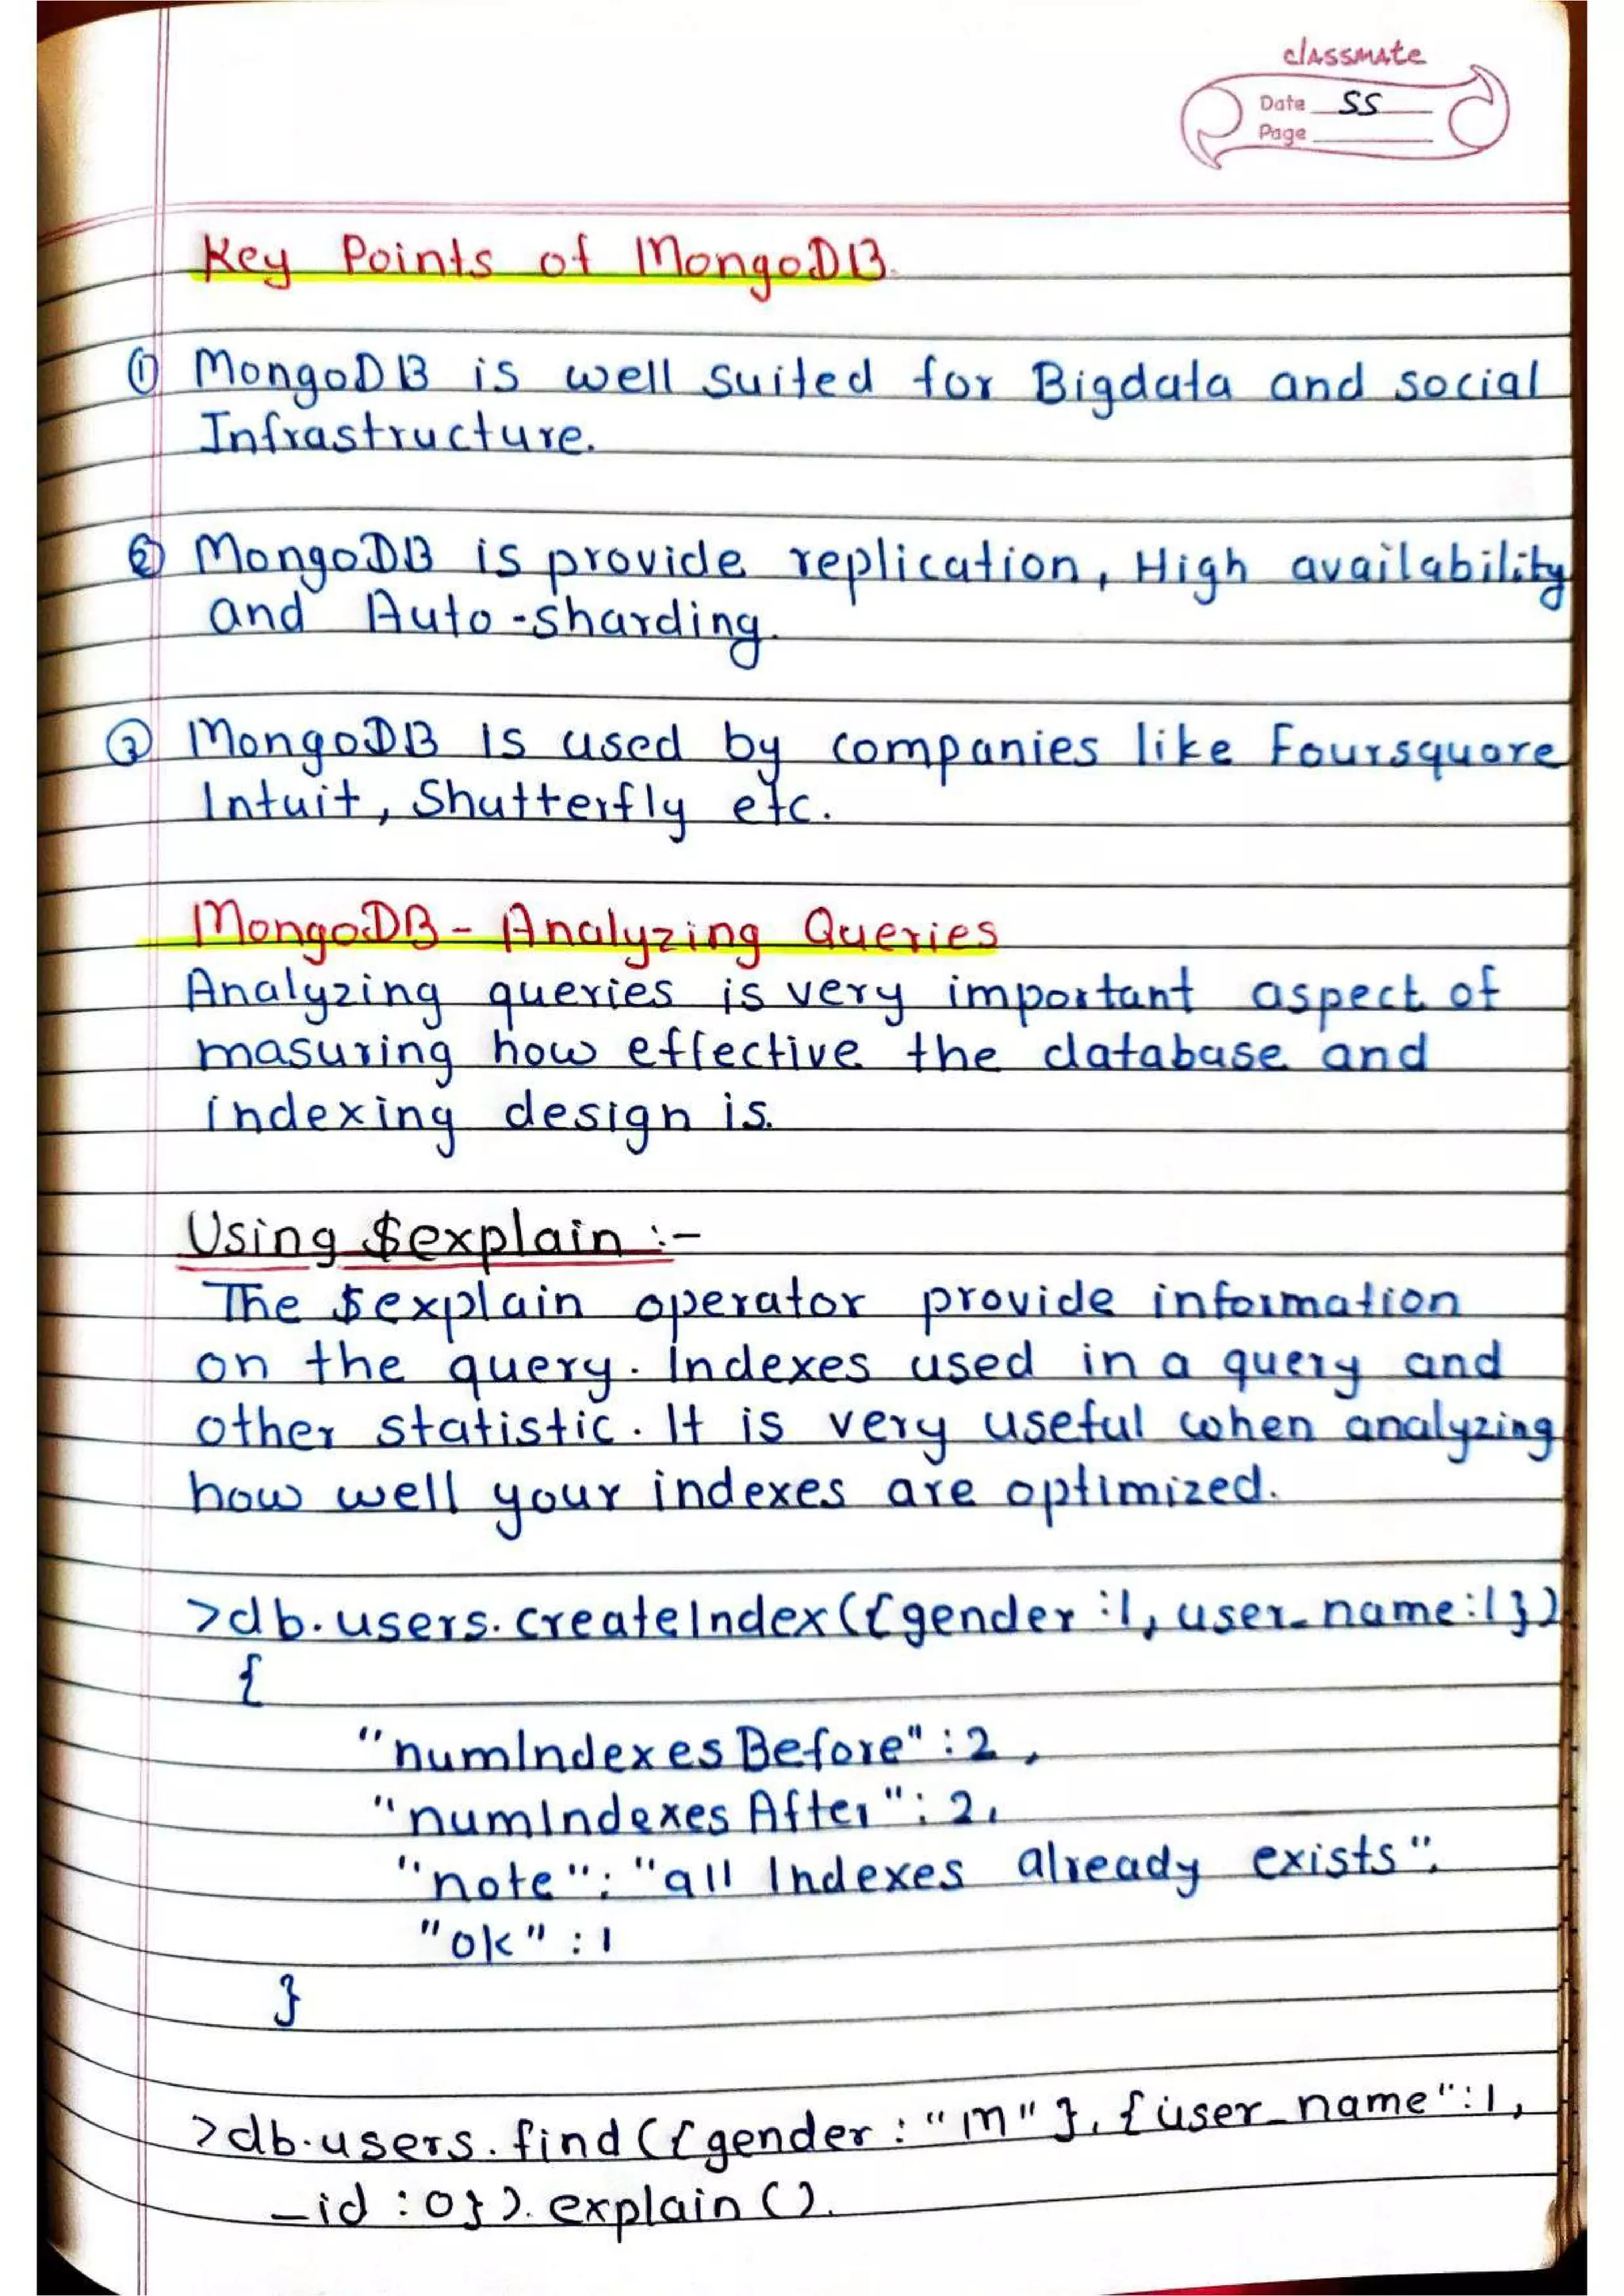 classmate
Date SS
Page
Key Points of MongoDB.
① MongoDB is well suited for Bigdata and social
Infrastructure.
② MongoDB is provide replication, High availability
and Auto-sharding.
③ MongoDB is used by companies like Foursquare
Intuit, Shutterfly etc.
MongoDB - Analyzing Queries
Analyzing queries is very important aspect of
masuring how effective the database and
indexing design is.
Using $explain :-
The $explain operator provide information
on the query. Indexes used in a query and
other statistic. It is very useful when analyzing
how well your indexes are optimized.
>db.users.createIndex({gender:1, user_name:1})
{
"numIndexesBefore" : 2,
"numIndexes After" : 2,
"note" : "all Indexes already exists",
"ok" : 1
}
>db.users.find({gender : "M"}, {user_name":1,
_id : 0}).explain().